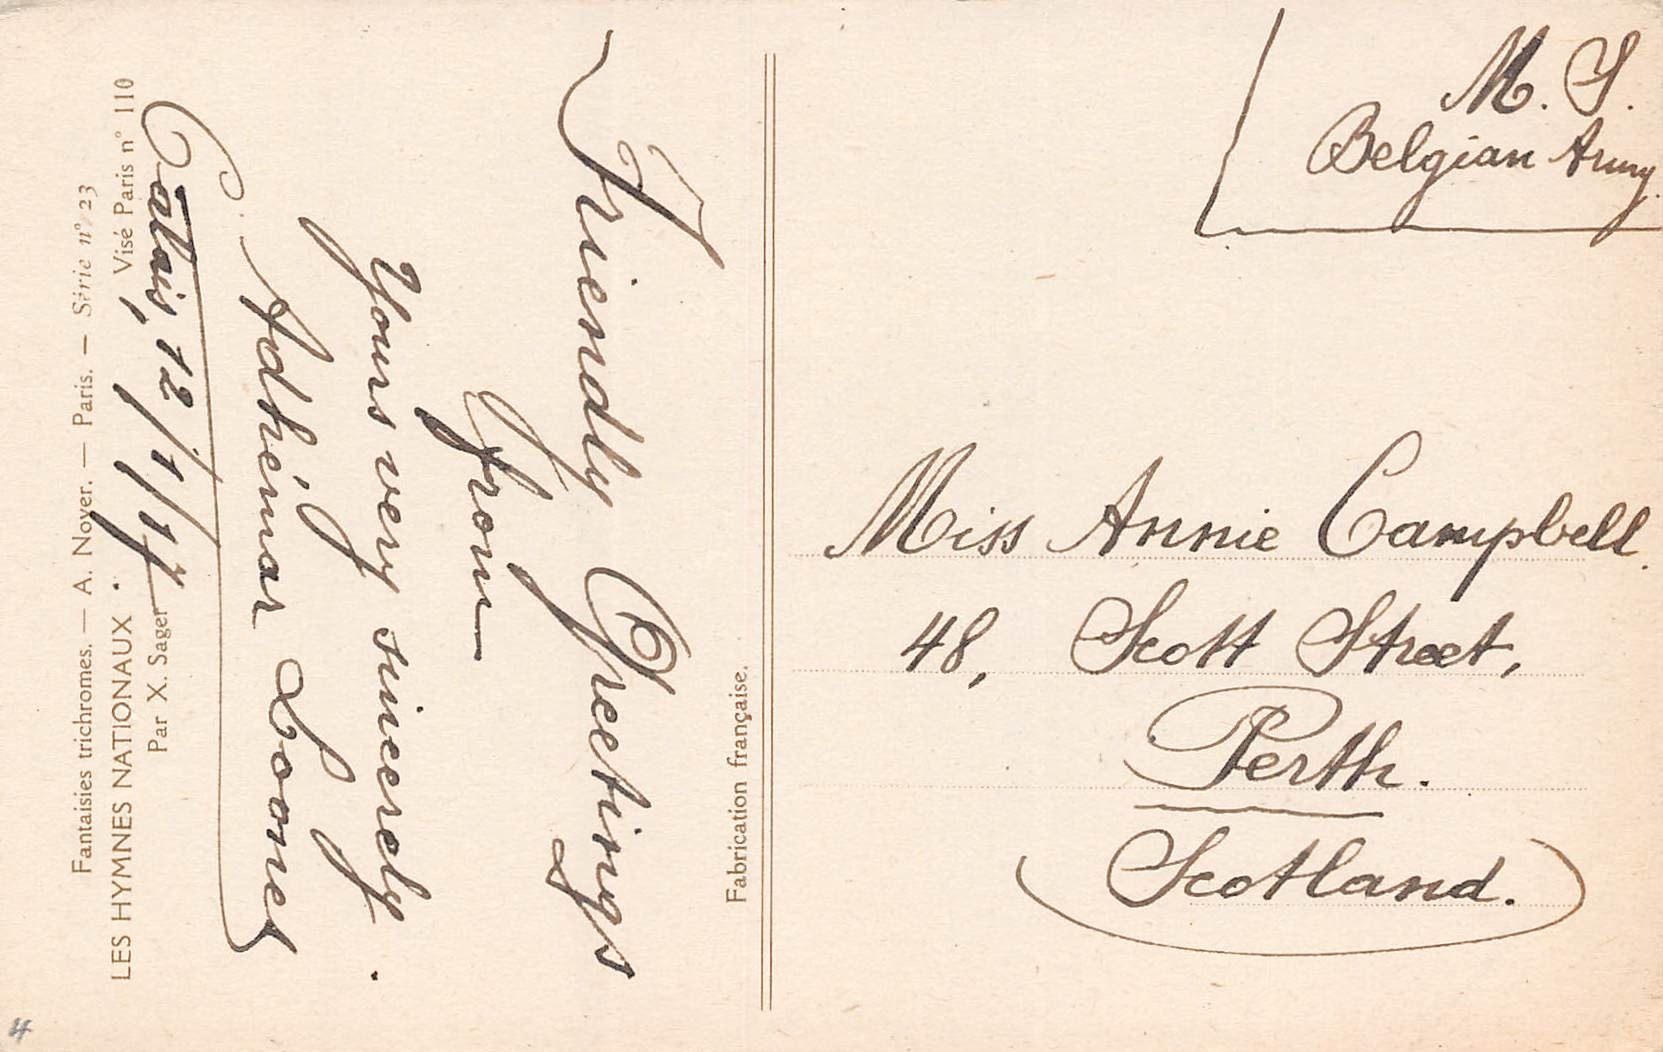 Fantaisies trichromes. — A. Noyer. — Paris. — Série n° 23
LES HYMNES NATIONAUX Visé Paris n° 110
Par X. Sager
Calais, 12/1/17.
Friendly Greetings
from
Yours very sincerely.
Adhémar
Fabrication française.
M. S.
Belgian Army.
Miss Annie Campbell.
48, Scott Street,
Perth.
Scotland.